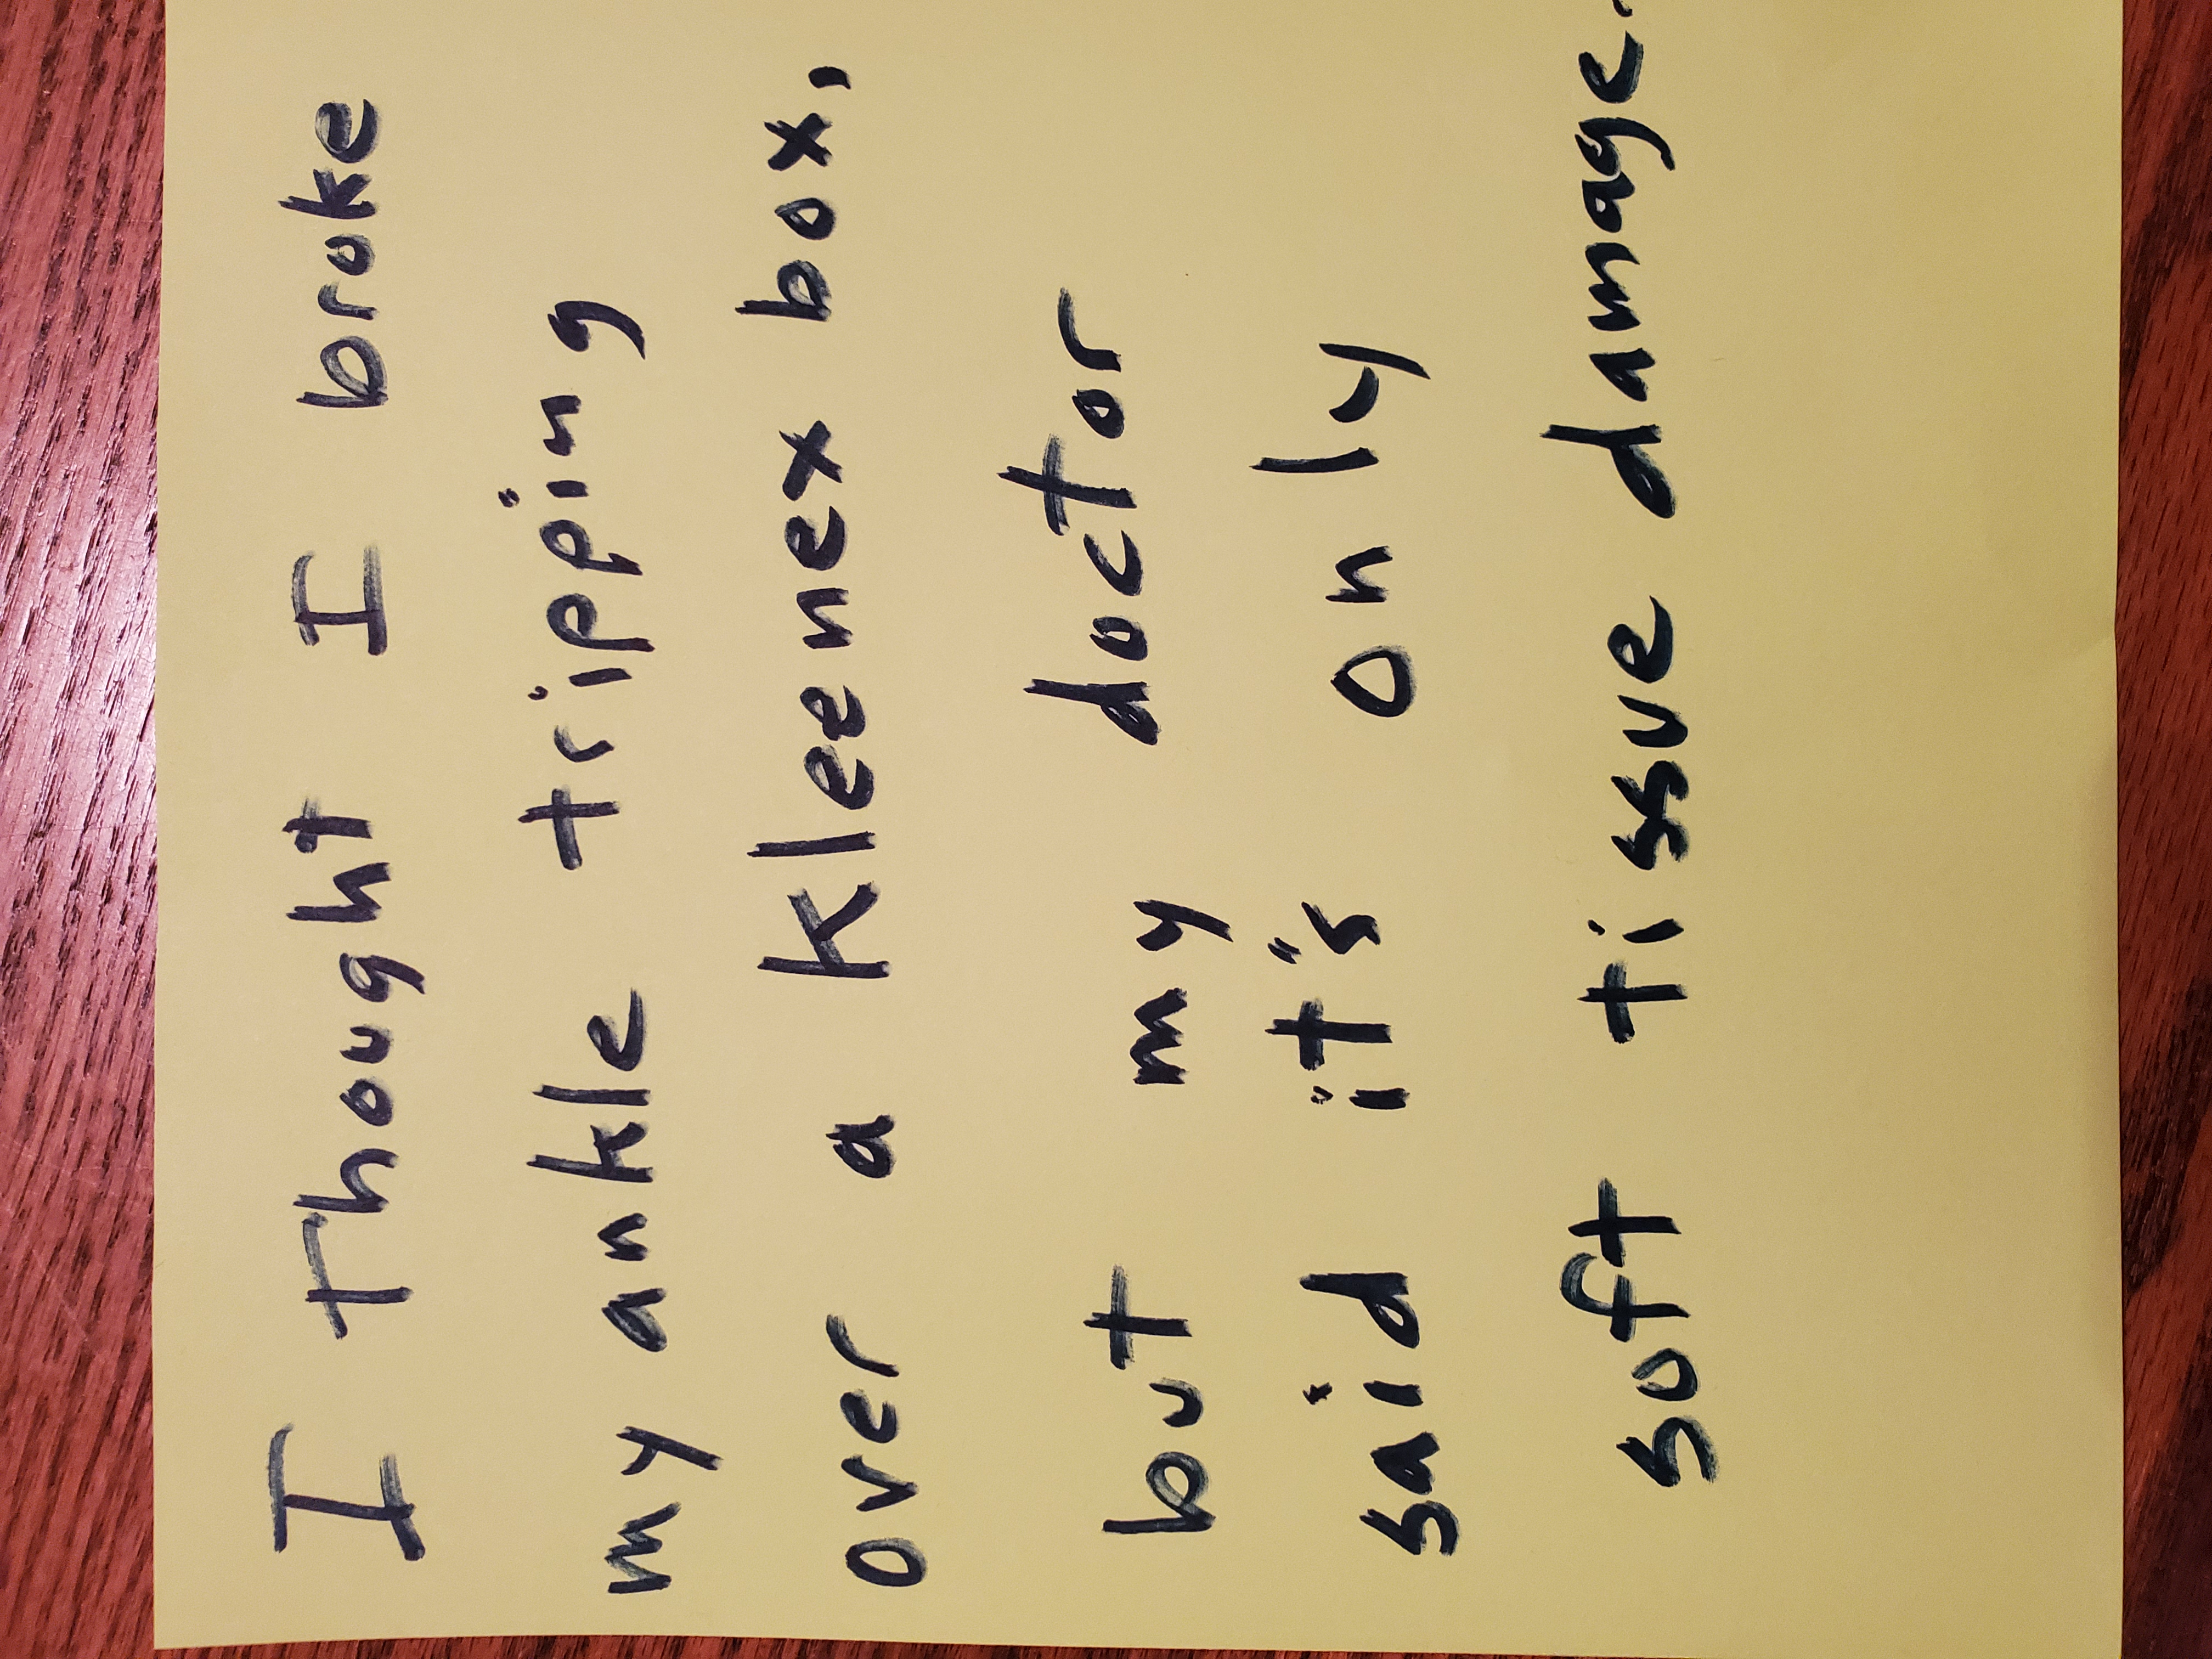 I thought I broke
my ankle tripping
over a Kleenex box,
but my doctor
said it's only
soft tissue damage.